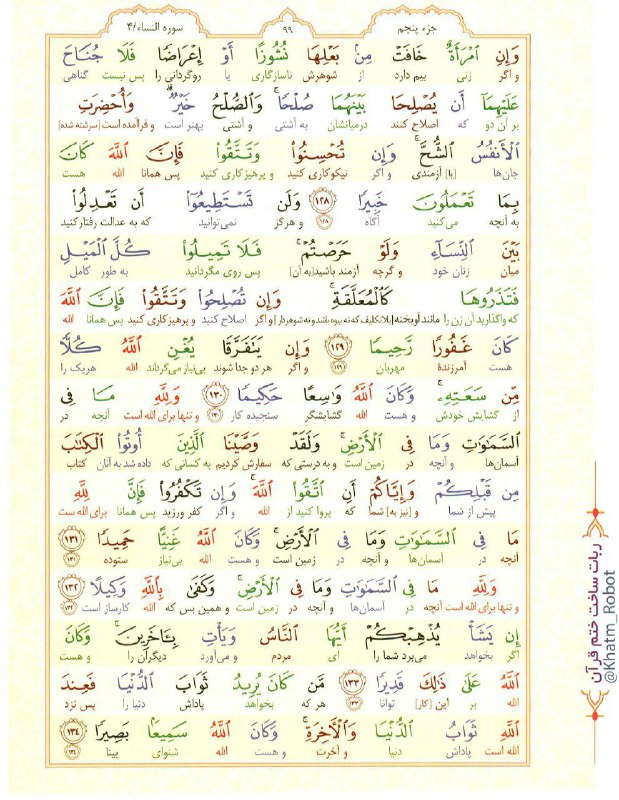 جزء پنجم ۹۹ سوره النساء/۴
وَإِنِ ٱمْرَأَةٌ خَافَتْ مِنۢ بَعْلِهَا نُشُوزًا أَوْ إِعْرَاضًا فَلَا جُنَاحَ
و اگر زنی بیم دارد از شوهرش ناسازگاری یا روگردانی را پس نیست گناهی
عَلَيْهِمَآ أَن يُصْلِحَا بَيْنَهُمَا صُلْحًا ۚ وَٱلصُّلْحُ خَيْرٌ ۗ وَأُحْضِرَتِ
بر آن دو که اصلاح کنند درمیانشان به آشتی و آشتی بهتر است و فرآمده است [سرشته شده]
ٱلْأَنفُسُ ٱلشُّحَّ ۚ وَإِن تُحْسِنُوا۟ وَتَتَّقُوا۟ فَإِنَّ ٱللَّهَ كَانَ
جان‌ها [با] آزمندی و اگر نیکوکاری کنید و پرهیزکاری کنید پس همانا الله هست
بِمَا تَعْمَلُونَ خَبِيرًا ۱۲۸ وَلَن تَسْتَطِيعُوٓا۟ أَن تَعْدِلُوا۟
به آنچه می‌کنید آگاه ۱۲۸ و هرگز نمی‌توانید که به عدالت رفتار کنید
بَيْنَ ٱلنِّسَآءِ وَلَوْ حَرَصْتُمْ ۖ فَلَا تَمِيلُوا۟ كُلَّ ٱلْمَيْلِ
میان زنان خود و گرچه آزمند باشید [به آن] پس روی مگردانید به طور کامل
فَتَذَرُوهَا كَٱلْمُعَلَّقَةِ ۚ وَإِن تُصْلِحُوا۟ وَتَتَّقُوا۟ فَإِنَّ ٱللَّهَ
که واگذارید آن زن را مانند آویخته [بلاتکلیف که نه بیوه باشد و نه شوهردار] و اگر اصلاح کنید و پرهیزکاری کنید پس همانا الله
كَانَ غَفُورًا رَّحِيمًا ۱۲۹ وَإِن يَتَفَرَّقَا يُغْنِ ٱللَّهُ كُلًّا
هست آمرزندهٔ مهربان ۱۲۹ و اگر هر دو جدا شوند بی‌نیاز می‌گرداند الله هریک را
مِّن سَعَتِهِۦ ۚ وَكَانَ ٱللَّهُ وَٰسِعًا حَكِيمًا ۱۳۰ وَلِلَّهِ مَا فِى
از گشایش خودش و هست الله گشایشگر سنجیده کار ۱۳۰ و تنها برای الله است آنچه در
ٱلسَّمَٰوَٰتِ وَمَا فِى ٱلْأَرْضِ ۗ وَلَقَدْ وَصَّيْنَا ٱلَّذِينَ أُوتُوا۟ ٱلْكِتَٰبَ
آسمان‌ها و آنچه در زمین است و به درستی که سفارش کردیم به کسانی که داده شد به آنان کتاب
مِن قَبْلِكُمْ وَإِيَّاكُمْ أَنِ ٱتَّقُوا۟ ٱللَّهَ ۚ وَإِن تَكْفُرُوا۟ فَإِنَّ لِلَّهِ
پیش از شما و [نیز به] شما که پروا کنید از الله و اگر کفر ورزید پس همانا برای الله است
مَا فِى ٱلسَّمَٰوَٰتِ وَمَا فِى ٱلْأَرْضِ ۚ وَكَانَ ٱللَّهُ غَنِيًّا حَمِيدًا ۱۳۱
آنچه در آسمان‌ها و آنچه در زمین است و هست الله بی‌نیاز ستوده ۱۳۱
وَلِلَّهِ مَا فِى ٱلسَّمَٰوَٰتِ وَمَا فِى ٱلْأَرْضِ ۚ وَكَفَىٰ بِٱللَّهِ وَكِيلًا ۱۳۲
و تنها برای الله است آنچه در آسمان‌ها و آنچه در زمین است و همین بس که الله کارساز است ۱۳۲
إِن يَشَأْ يُذْهِبْكُمْ أَيُّهَا ٱلنَّاسُ وَيَأْتِ بِـَٔاخَرِينَ ۚ وَكَانَ
اگر بخواهد می‌برد شما را ای مردم و می‌آورد دیگرآن را و هست
ٱللَّهُ عَلَىٰ ذَٰلِكَ قَدِيرًا ۱۳۳ مَّن كَانَ يُرِيدُ ثَوَابَ ٱلدُّنْيَا فَعِندَ
الله بر این [کار] توانا ۱۳۳ هر که بخواهد پاداش دنیا را پس نزد
ٱللَّهِ ثَوَابُ ٱلدُّنْيَا وَٱلْءَاخِرَةِ ۚ وَكَانَ ٱللَّهُ سَمِيعًۢا بَصِيرًا ۱۳۴
الله است پاداش دنیا و آخرت و هست الله شنوای بینا ۱۳۴
ربات ساخت ختم قرآن
@Khatm_Robot